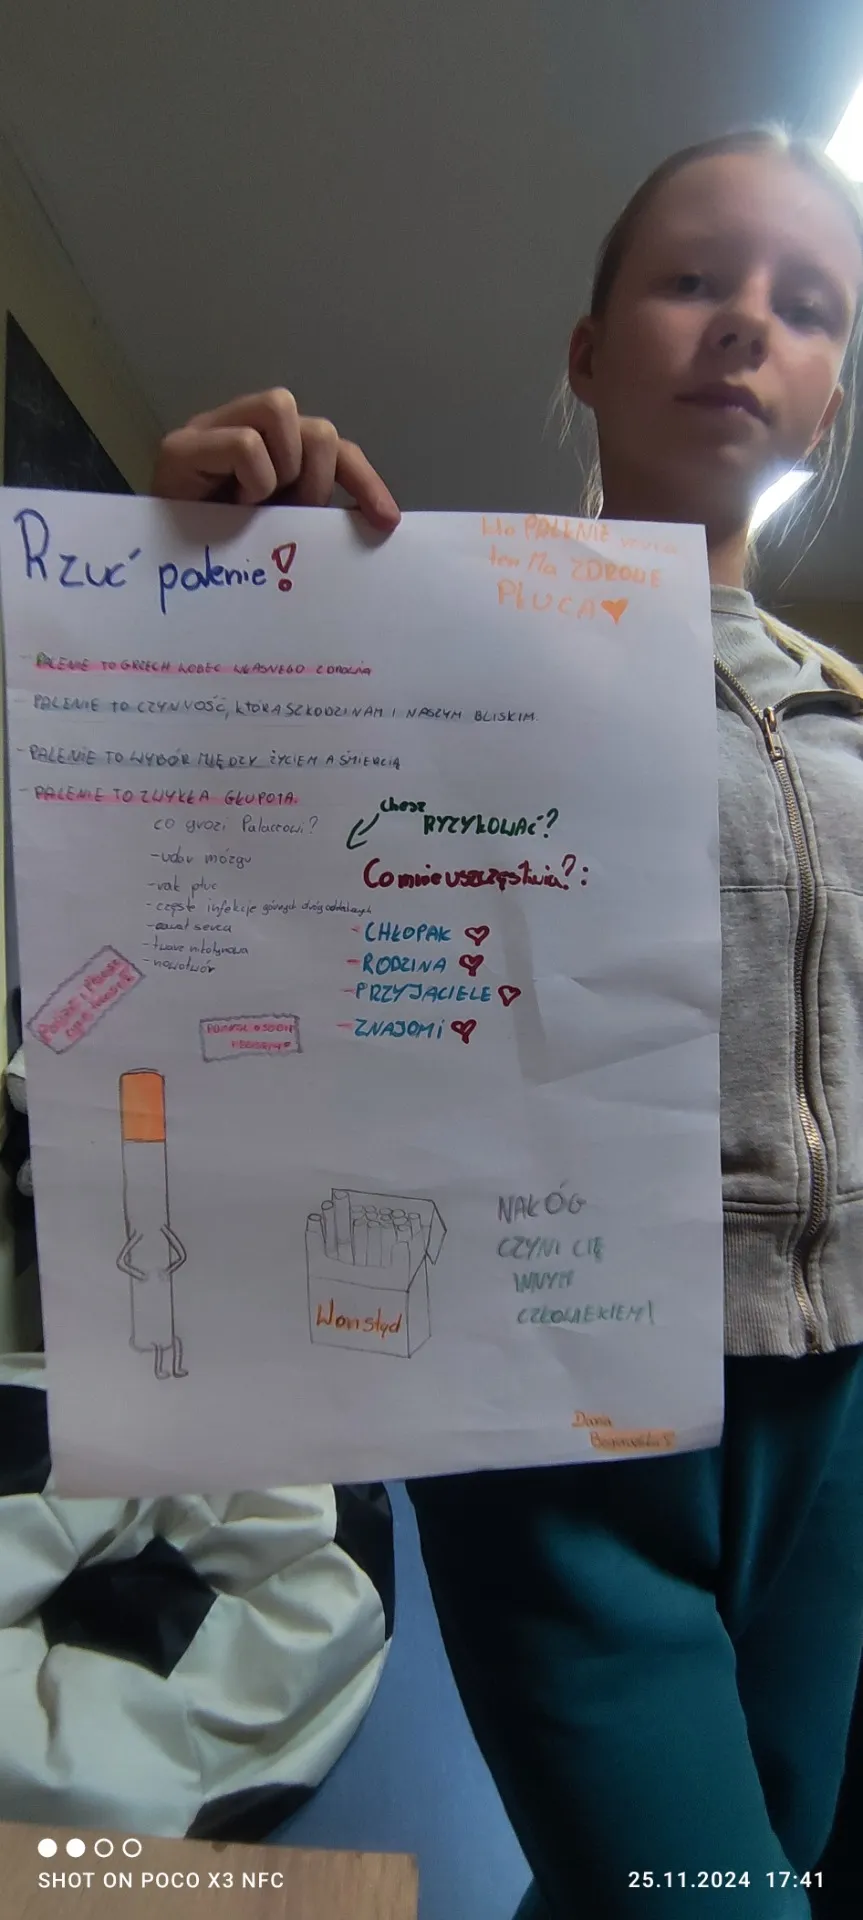 Rzuć palenie!
kto PALENIE rzuca
ten Ma ZDROWE
PŁUCA
- PALENIE TO GRZECH WOBEC WŁASNEGO ZDROWIA
- PALENIE TO CZYNNOŚĆ, KTÓRA SZKODZI NAM I NASZYM BLISKIM.
- PALENIE TO WYBÓR MIĘDZY ŻYCIEM A ŚMIERCIĄ
- PALENIE TO ZWYKŁA GŁUPOTA.
co grozi Palaczowi?
- udar mózgu
- rak płuc
- częste infekcje górnych dróg oddechowych
- zawał serca
- twarz nikotynowa
- nowotwór
chcesz
RYZYKOWAĆ?
Co mnie uszczęśliwia?:
- CHŁOPAK
- RODZINA
- PRZYJACIELE
- ZNAJOMI
Wonsłyd
NAŁÓG
CZYNI CIĘ
INNYM
CZŁOWIEKIEM!
SHOT ON POCO X3 NFC
25.11.2024 17:41